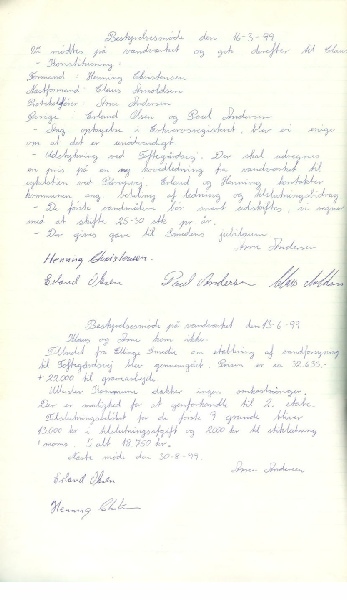 Bestyrelsesmøde den 16-3-99
Vi mødtes på vandværket og gik derefter til Claus
- Konstituering -
Formand : Henning Christensen
Næstformand : Claus Arnoldsen
Protokolfører : Arne Andersen
Øvrige : Erland Olsen og Poul Andersen
- Jag optagelse i Erhvervsregisteret, blev vi enige
om at det er unødvendigt
- Udstykning ved Toftegårdsvej. Der skal udregnes
en pris på en ny hovedledning fra vandværket til
Erland og Henning kontakter
kommunen ang. betaling af ledning og tilslutningsbidrag
- De første vandmålere før snart udskiftes, vi regner
med at skifte 25-30 stk pr år.
- Der gives gave til Camillas jubilæum
Arne Andersen
Henning Christensen
Erland Olsen Poul Andersen Claus Arnoldsen
Bestyrelsesmøde på vandværket den 13-6-99
Klaus og Arne kom ikke.
Tilbudet fra Ellinge Smedie om etablering af vandforsyning
til Toftegårdsvej blev gennemgået. Prisen er kr 32.635.-
+ 22.000 til gravearbejde
Kommune dækker ingen omkostninger.
Der er mulighed for at genforhandle til 2. etabe.
for de første 9 grunde bliver
13.000 kr i tilslutningsafgift og 2000 kr til stikledning
+ moms. I alt 18.750 kr.
Næste møde den 30-8-99.
Arne Andersen
Erland Olsen
Henning